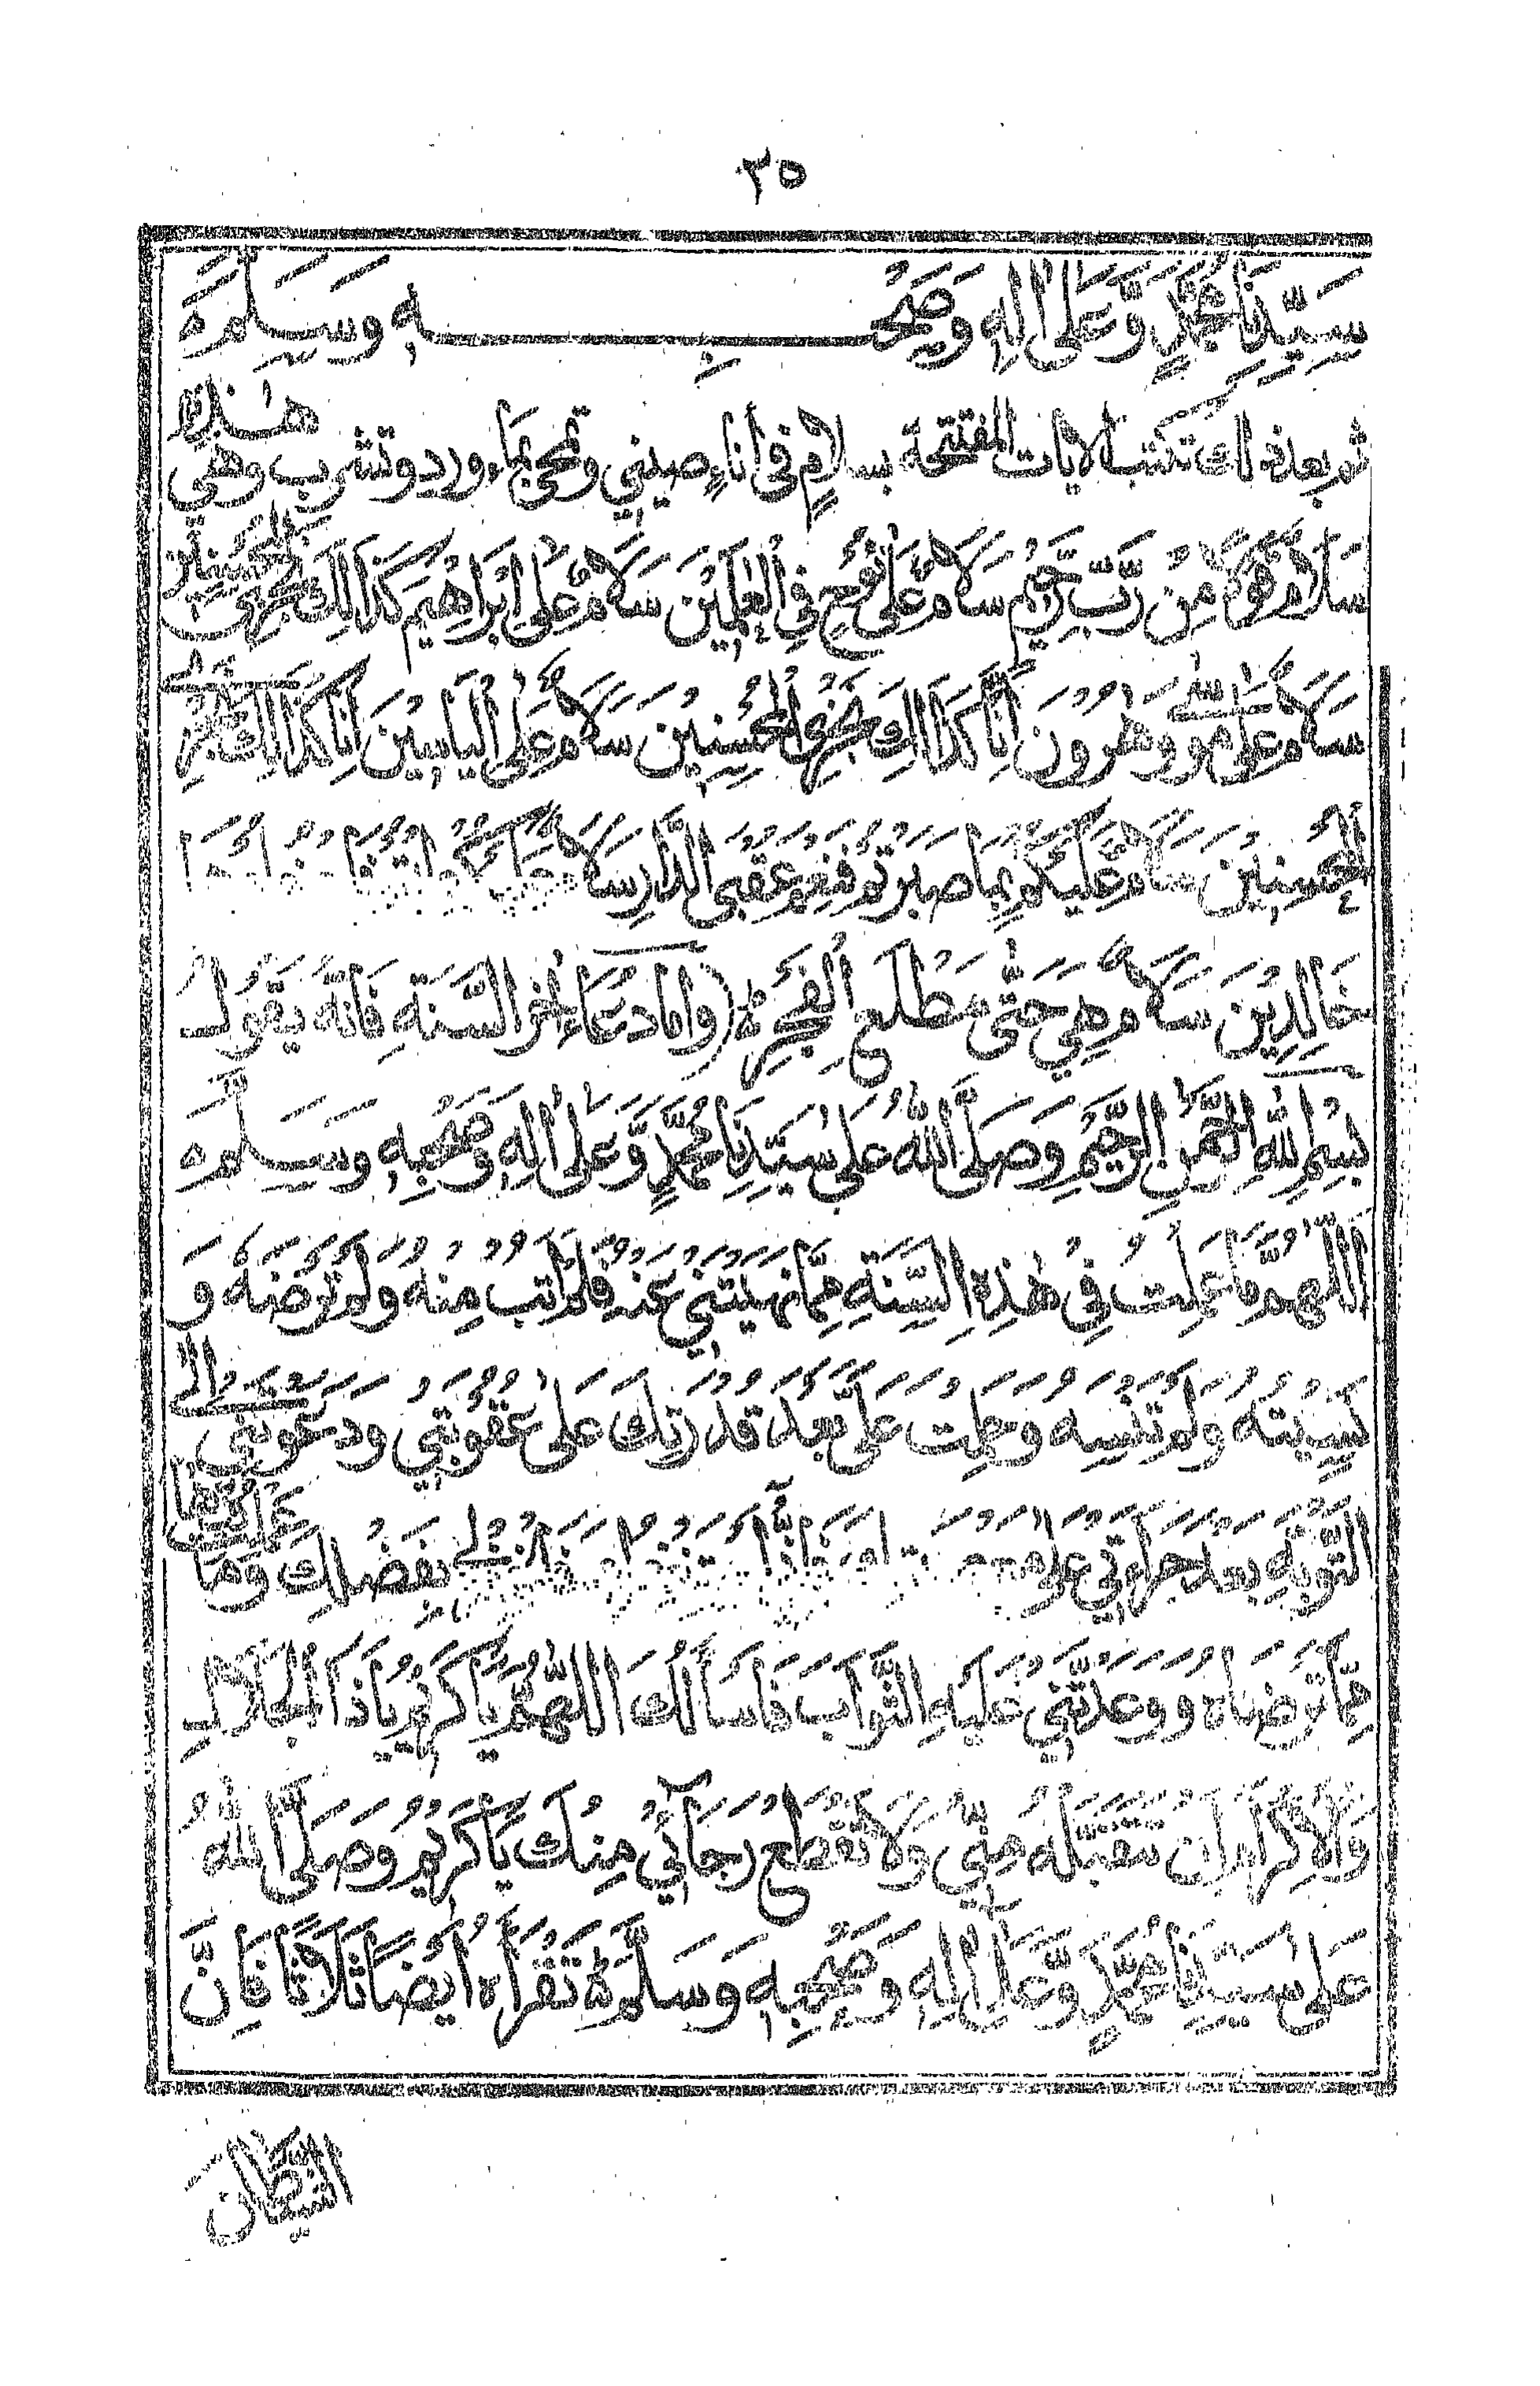 ٣٥
سَيِّدِنَا مُحَمَّدٍ وَّعَلٰى اٰلِهٖ وَصَحْبِهٖ وَسَلِّمْ
ثم بعد ذالك تكتب الايات المفتتحة بسلامٍ فى اناءٍ صيني وتمحى بماء ورد وتشرب وهي هٰذه
سَلَامٌ قَوْلًا مِنْ رَّبٍّ رَّحِيْمٍ سَلَامٌ عَلٰى نُوْحٍ فِي الْعٰلَمِيْنَ سَلَامٌ عَلٰى اِبْرَاهِيْمَ كَذَالِكَ نَجْزِى الْمُحْسِنِيْنَ
سَلَامٌ عَلٰى مُوْسٰى وَهٰرُوْنَ اِنَّا كَذَالِكَ نَجْزِى الْمُحْسِنِيْنَ سَلَامٌ عَلٰى اِلْيَاسِيْنَ اِنَّا كَذَالِكَ نَجْزِى
الْمُحْسِنِيْنَ سَلَامٌ عَلَيْكُمْ بِمَا صَبَرْتُمْ فَنِعْمَ عُقْبَى الدَّارِ سَلَامٌ
خَالِدِيْنَ سَلَامٌ هِيَ حَتّٰى مَطْلَعِ الْفَجْرِ (واما دُعَاءُ اٰخر السَّنَةِ فَاِنَّهٗ يَقُوْلُ
بِسْمِ اللّٰهِ الرَّحْمٰنِ الرَّحِيْمِ وَصَلَّى اللّٰهُ عَلٰى سَيِّدِنَا مُحَمَّدٍ وَّعَلٰى اٰلِهٖ وَصَحْبِهٖ وَسَلَّمَ
اَللّٰهُمَّ مَا عَمِلْتُ فِىْ هٰذِهِ السَّنَةِ مِمَّا نَهَيْتَنِيْ عَنْهُ فَلَمْ اَتُبْ مِنْهُ وَلَمْ تَرْضَهٗ وَ
نَسِيْتُهٗ وَلَمْ تَنْسَهٗ وَحَلِمْتَ عَلَيَّ بَعْدَ قُدْرَتِكَ عَلٰى عُقُوْبَتِيْ وَدَعَوْتَنِيْ اِلَى
التَّوْبَةِ بَعْدَ جَرَاءَتِيْ عَلٰى بِفَضْلِكَ وَمَا عَمِلْتُ فِيْهَا
مِمَّا تَرْضَاهُ وَوَعَدْتَّنِيْ عَلَيْهِ الثَّوَابَ فَاَسْأَلُكَ اللّٰهُمَّ يَا كَرِيْمُ يَا ذَا الْجَلَالِ
وَالْاِكْرَامِ اَنْ تَتَقَبَّلَهٗ مِنِّيْ وَلَا تَقْطَعْ رَجَآئِيْ مِنْكَ يَا كَرِيْمُ وَصَلَّى اللّٰهُ
عَلٰى سَيِّدِنَا مُحَمَّدٍ وَّعَلٰى اٰلِهٖ وَصَحْبِهٖ وَسَلَّمَ تَقْرَأُهٗ اَيْضًا ثَلَاثًا فَاِنَّ
الشيطان